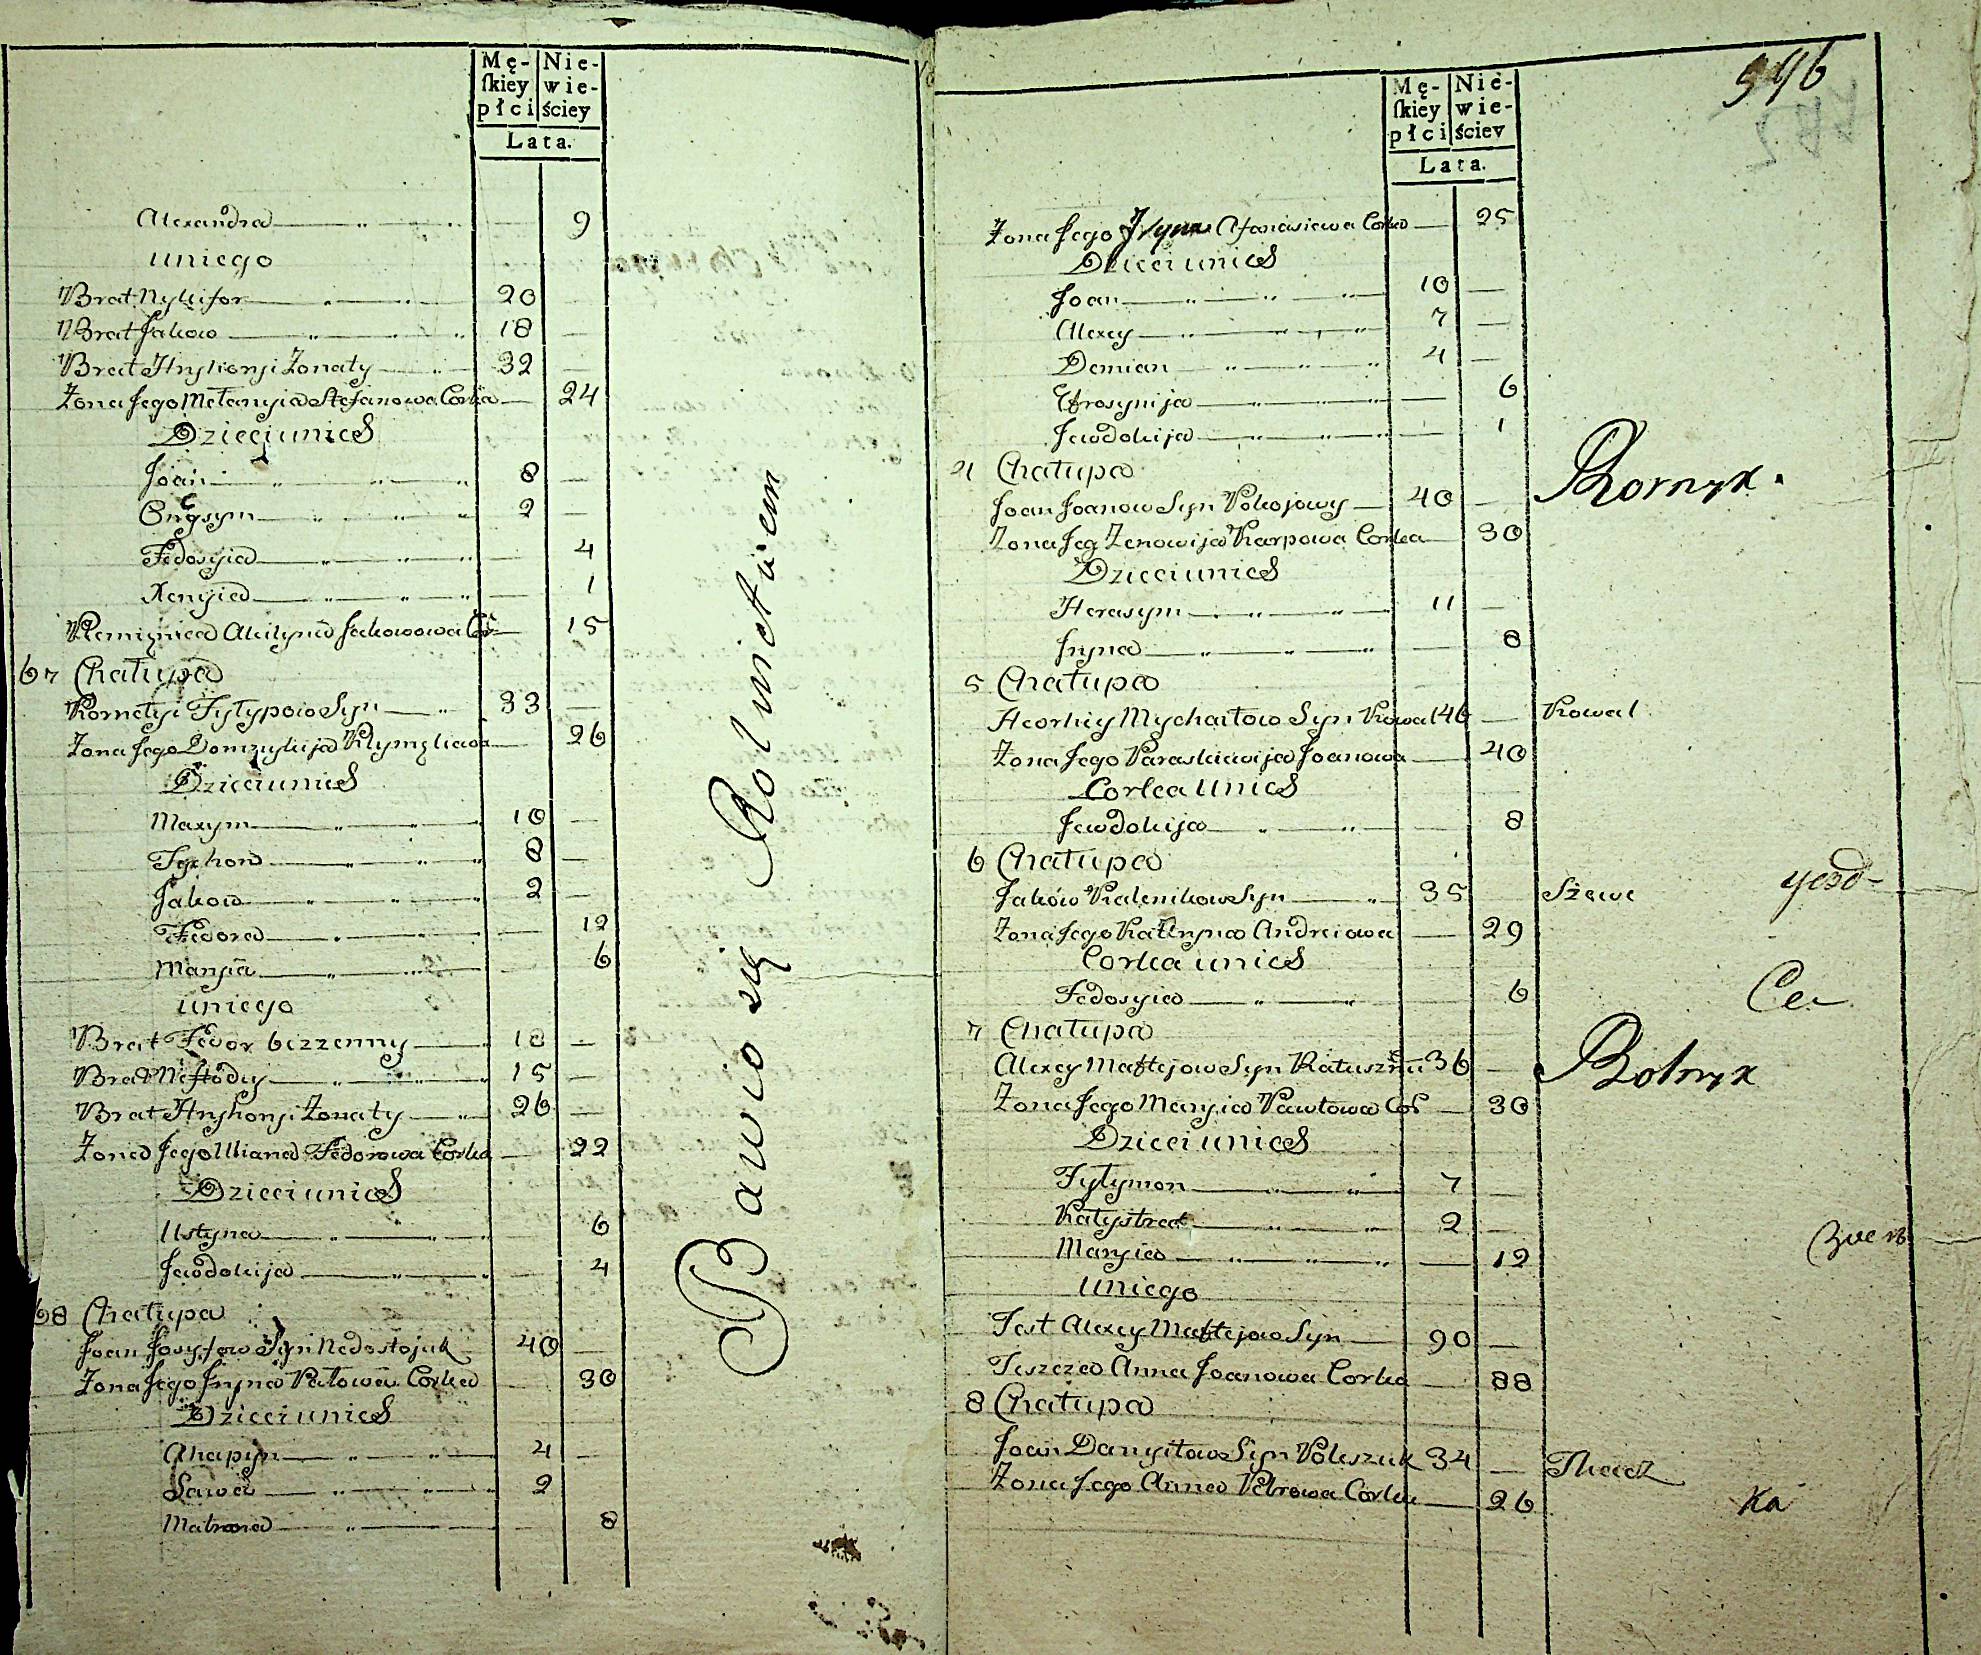 Mę- Nie-
ſkiey wie-
płci ściey
Lata.
Alexandra 9
uniego
Brat Nykifor 20
Brat Jakow 18
Brat Hryhoryi Zonaty 32
Zona Jego Melanyia Stefanowa Corka 24
Dzieci unich
Joan 8
Onysym 2
Fedosyia 4
Xenyia 1
Akilyna Jakowowa Cor 15
67 Chałupa
Kornelyi Fylypow Syn 33
Zona Jego 26
Dzieci unich
Maxym 10
Tychon 8
Jakow 2
Fedora 12
Maryia 6
uniego
Brat Fedor bezzenny 18
Brat Meftodiy 15
Brat Hryhoryi Zonaty 26
Zona Jego Uliana Fedorowa Corka 22
Dzieci unich
Ustyna 6
Jewdokija 4
68 Chałupa
Joan Josyfow Syn Nedostojuk 40
Zona Jego Iryna Pawłowa Corka 30
Dzieci unich
Ahapyn 4
Sawa 2
Matrona 8
Bawio się Rolnictwem
Mę- Nie-
ſkiey wie-
płci ściey
Lata.
Zona Jego Iryna Afanasiewa Corka 25
Dzieci unich
Joan 10
Alexey 7
Demian 4
Efrosynija 6
Jewdokija 1
4 Chałupa
Joan Joanow Syn Pokojowy 40
Zona Jeg Zenowija Karpowa Corka 30
Dzieci unich
Herasym 11
Iryna 8
5 Chałupa
Heorhiy Mychaiłow Syn Kowal 46 Kowal
Zona Jego Paraskiewija Joanowa 40
Corka unich
Jewdokija 8
6 Chałupa
Jaków Kalenikow Syn 35 Szewc
Zona Jego Katryna Andreiowa 29
Corka unich
Fedosyia 6
7 Chałupa
Alexey Maftejow Syn 36 Rolnyk
Zona Jego Maryia Pawłowa Cor 30
Dzieci unich
Fylymon 7
Kalystrat 2
Maryia 12
uniego
Test Alexey Maftejow Syn 90
Teszcza Anna Joanowa Corka 88
8 Chałupa
Joan Danyiłow Syn Poleszuk 34 Tkacz
Zona Jego Anna Petrowa Corka 26